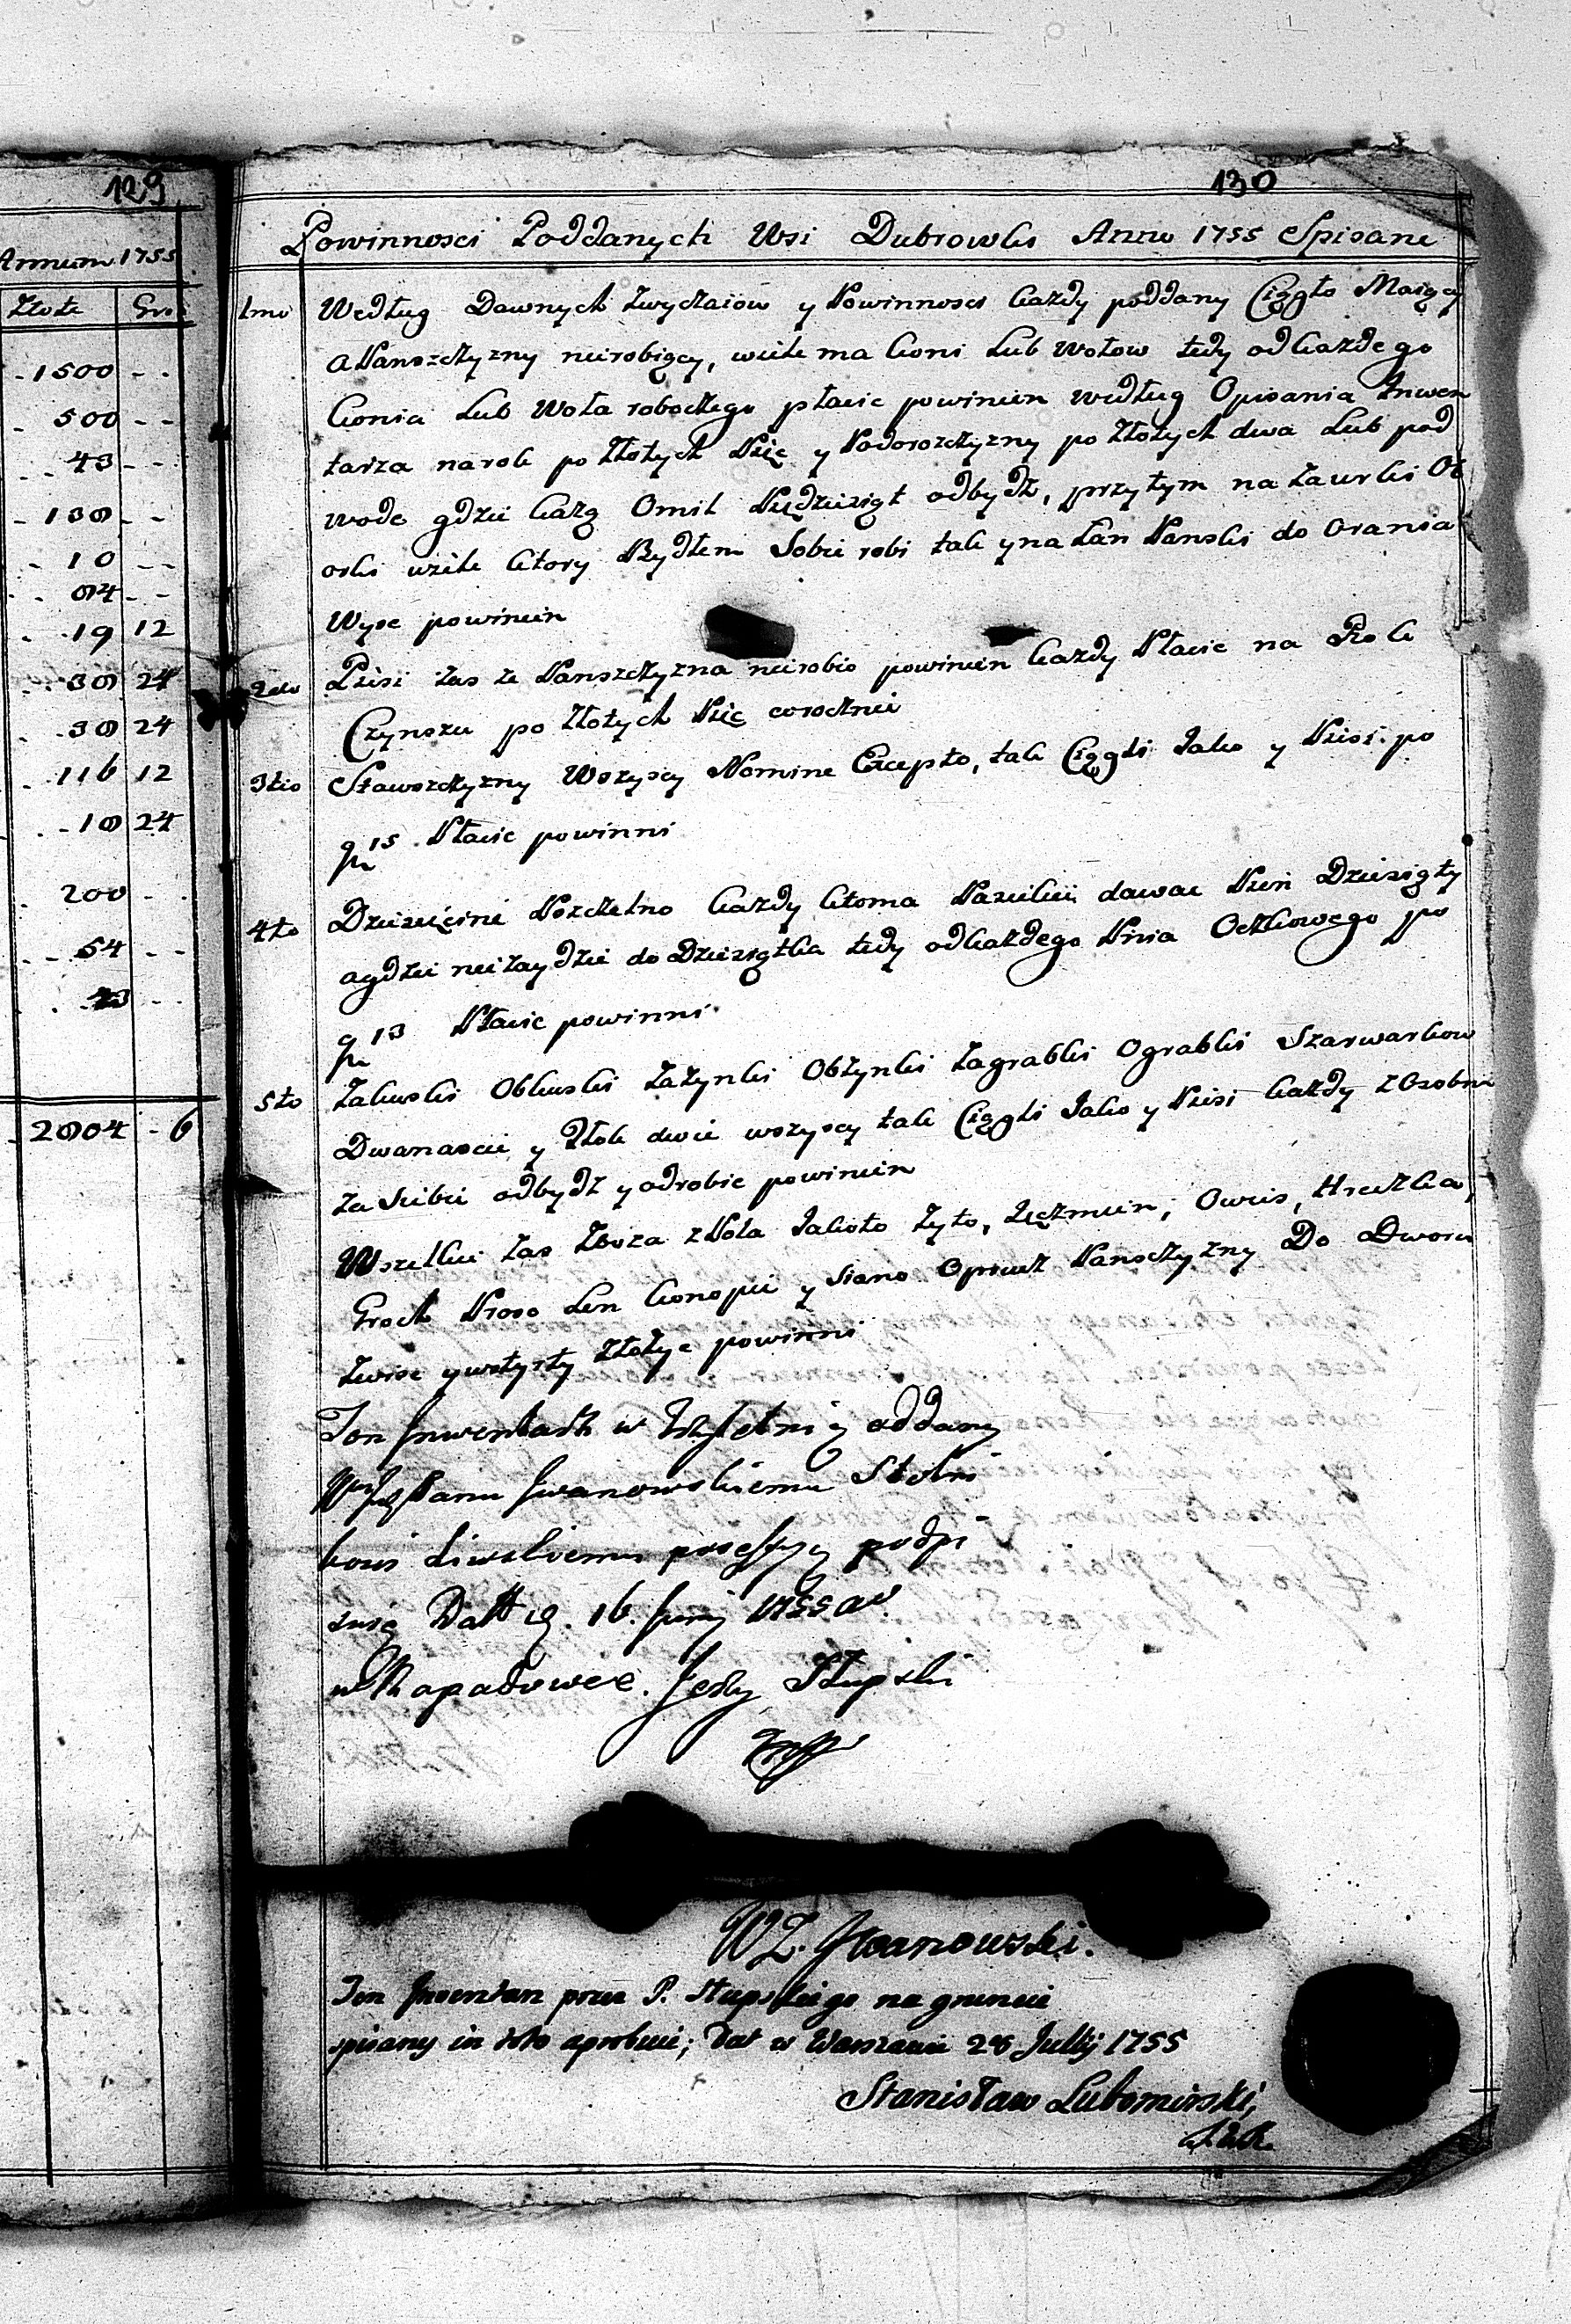 129
Annum 1755
Złote Gro
1500 - -
500 - -
43 - -
138 - -
10 - -
84 - -
19 12
38 24
38 24
116 12
18 24
200 - -
54 - -
2804 - 6
130
Powinnosci Poddanych Wsi Dubrowki Anno 1755 Spisane
1mo Według Dawnych Zwyczaiow y Powinnosci każdy poddany Ciągło Maiący
a Panszczyzny nierobiący, wiele ma koni Lub Wołow tedy od każdego
konia Lub Woła roboczego płacic powinien według Opisania Inwen
tarza narok po Złotych Pięc y Podorozczyzny po Złotych dwa Lub pod
wodę gdzie każą Omil Piędziesiąt odbydź, przytym na Zaorki Ob
orki wiele ktory Bydłem Sobie robi tak y na Łan Panski do Orania
Wysc powinien
2do Piesi zas ze Panszczyzna nierobio powinien każdy Płacic na Rok
Czynszu po Złotych Pięc corocznie
3tio Stawszczyzny Wszyscy Nemine Excepto, tak Ciągli Jako y Piesi po
gr 15 Płacic powinni
4to Dziesięcine Pszczelno każdy kto ma Pasieki dawac Pień Dziesiąty
a gdzie nie Zaydzie do Dziesiątka tedy od każdego Pnia Oczkowego po
gr 13 Płacic powinni
5to Zakoski Obkoski Zażynki Obżynki Zagrabki Ograbki Szarwarkow
Dwanascie y Tłok dwie wszyscy tak Ciągli Jako y Piesi każdy z Osobna
za Siebie odbydź y odrobic powinien
Wszelkie zas Zboza z Pola Jakoto Żyto, Jęczmien, Owies, Hreczka,
Groch Proso Len konopie y Siano Oprocz Panszczyzny Do Dworu
Zwiesc y w styrty Złożyc powinni
Ten Inwentarz w oddany
Panu Iwanowskiemu Stolni
kowi Liwskiemu possessyą podpi
suię Datt d. 16. Junij 1755 ao
w Rapadowce. Jerzy Słupski
WZ. Iwanowski.
Ten Inwentarz przez P. Słupskiego na gruncie
spisany in toto aprobuię; Dat w Warszawie 28 Julij 1755
Stanisław Lubomirski,